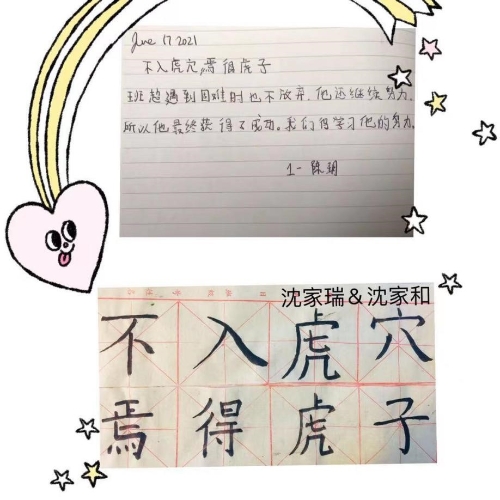 June 17 2021
不入虎穴,焉得虎子
班超遇到困难时也不放弃.他还继续努力,
所以他最终获得了成功。我们得学习他的努力.
1- 陈玥
沈家瑞&沈家和
不入虎穴
焉得虎子